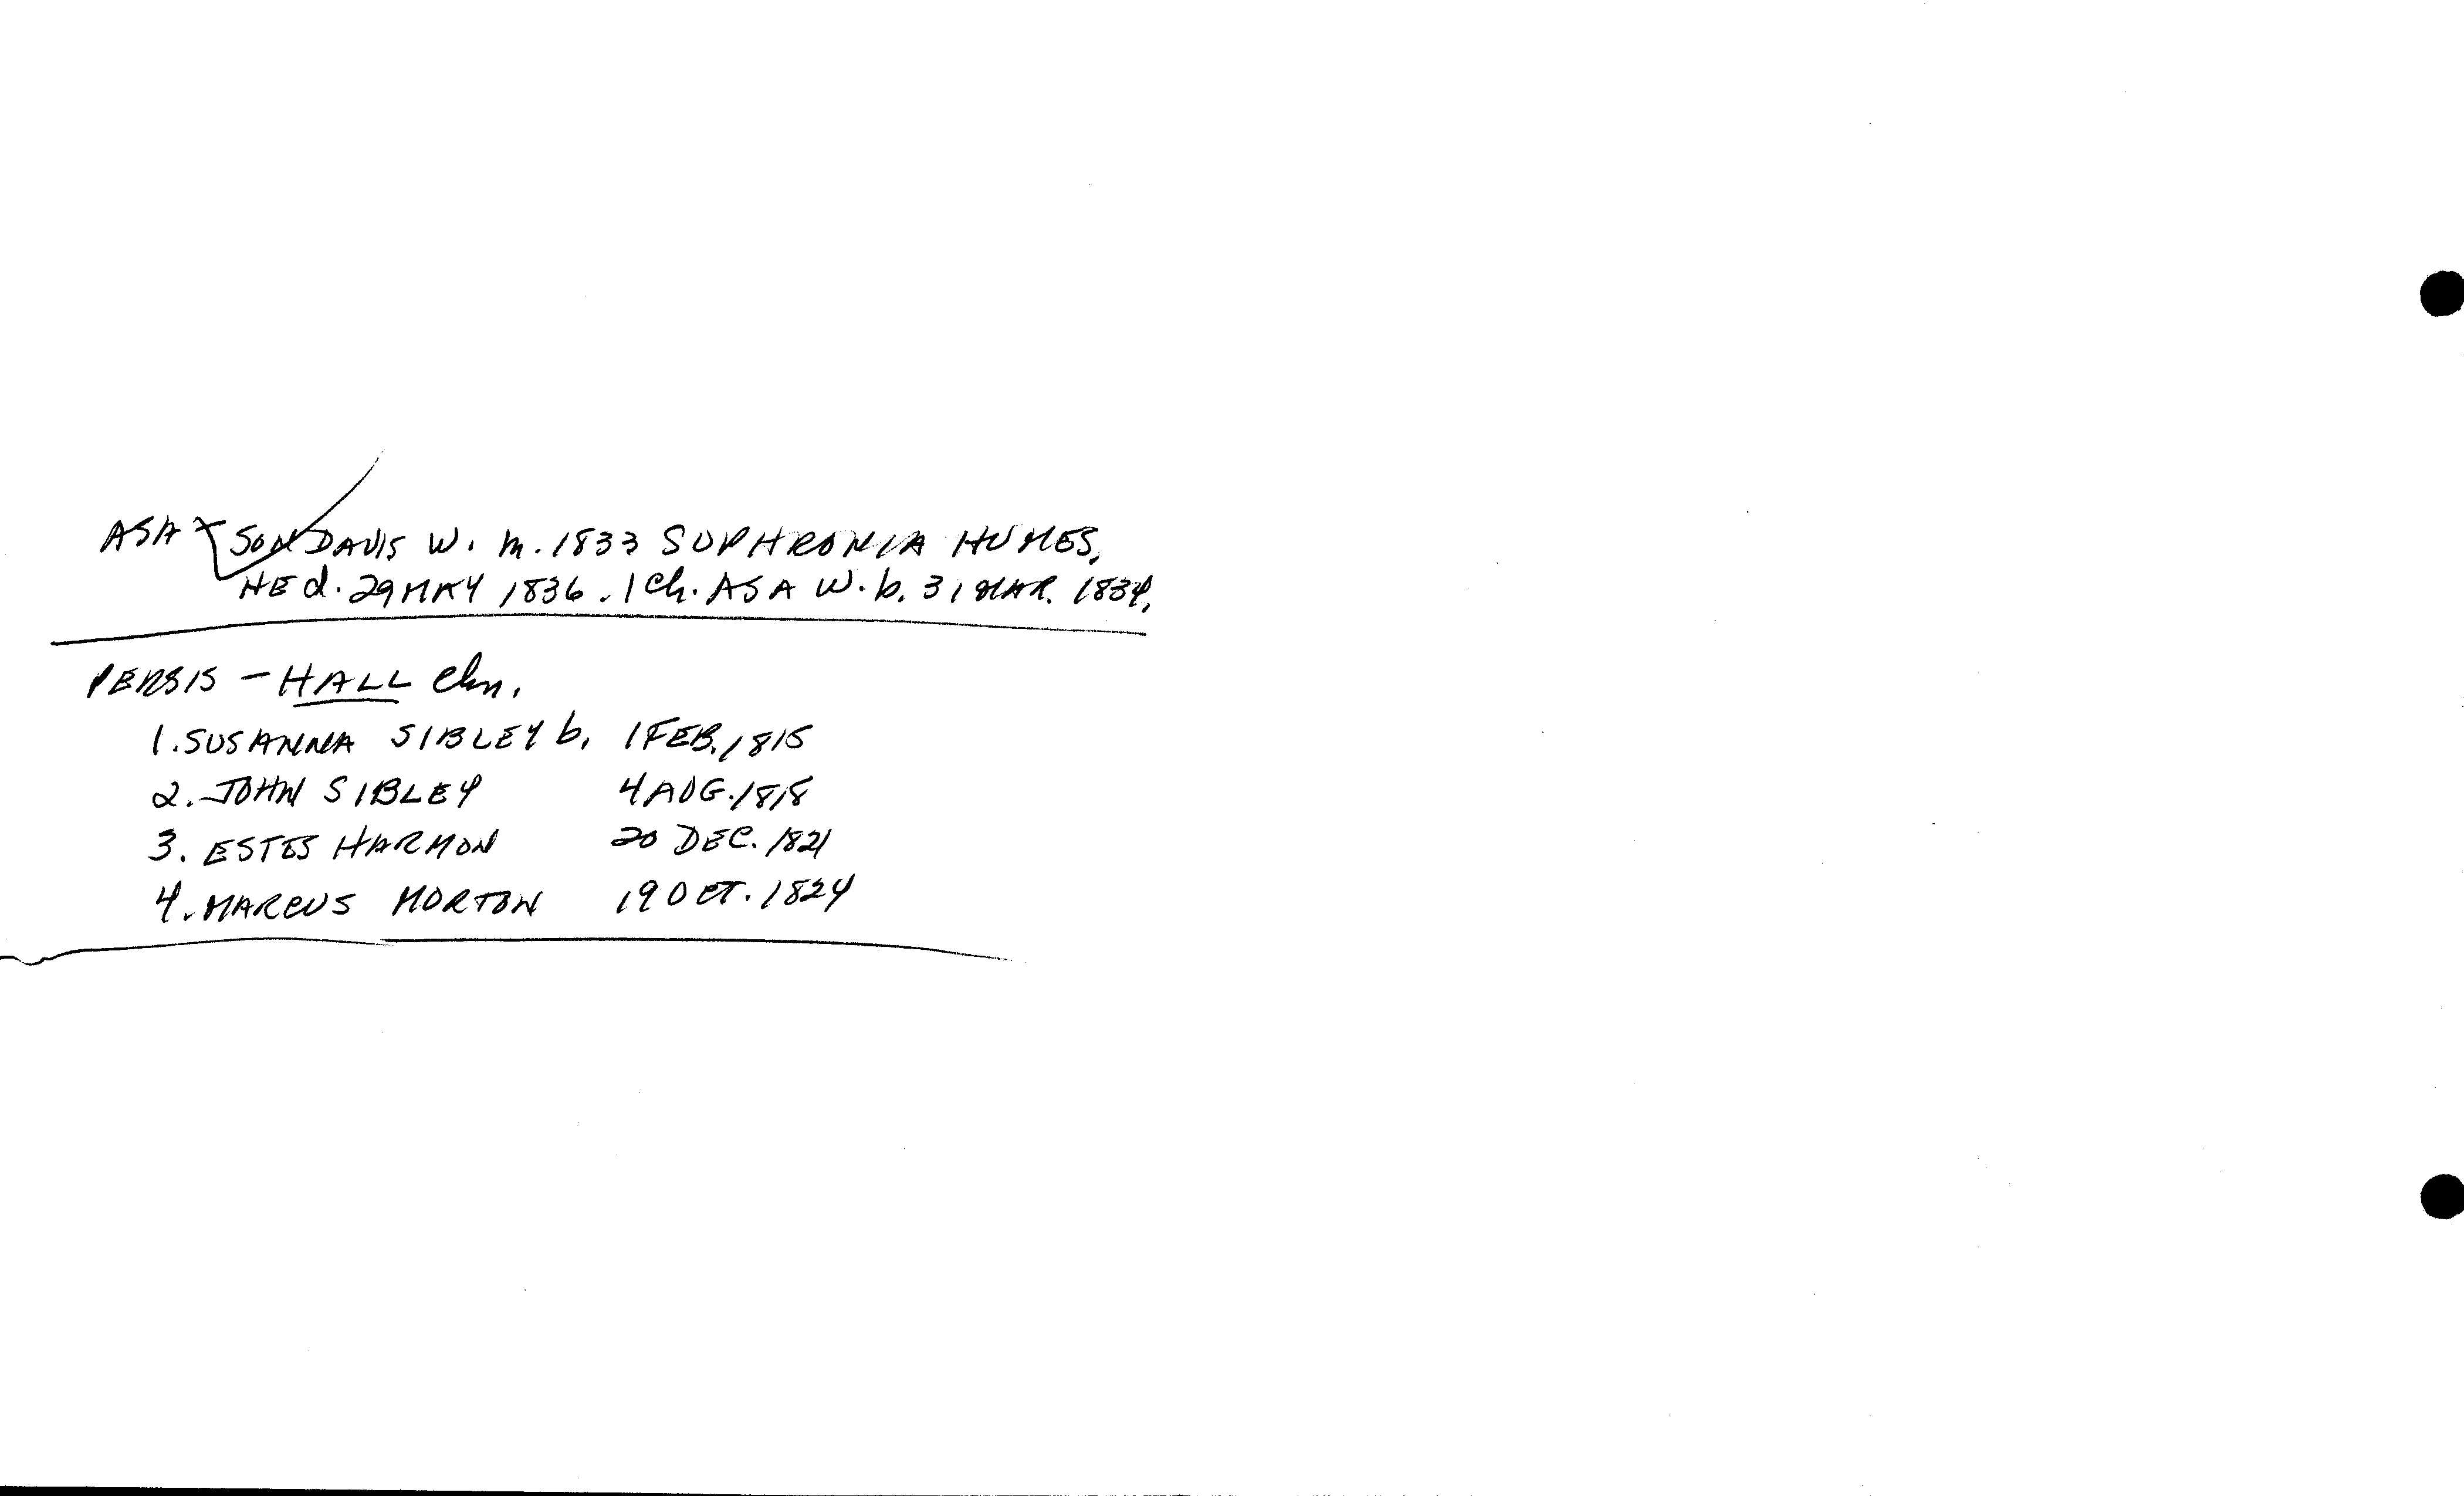 ASA SON DAVIS W. m. 1833 SOPHRONIA HUMES,
HE d. 29 MAY 1836. 1 Ch. ASA W. b. 31 MAR. 1834.
PERSIS - HALL Chn.
1. SUSANNA SIBLEY b. 1 FEB. 1815
2. JOHN SIBLEY 4 AUG. 1818
3. ESTES HARMON 20 DEC. 1821
4. MARCUS MORTON 19 OCT. 1824